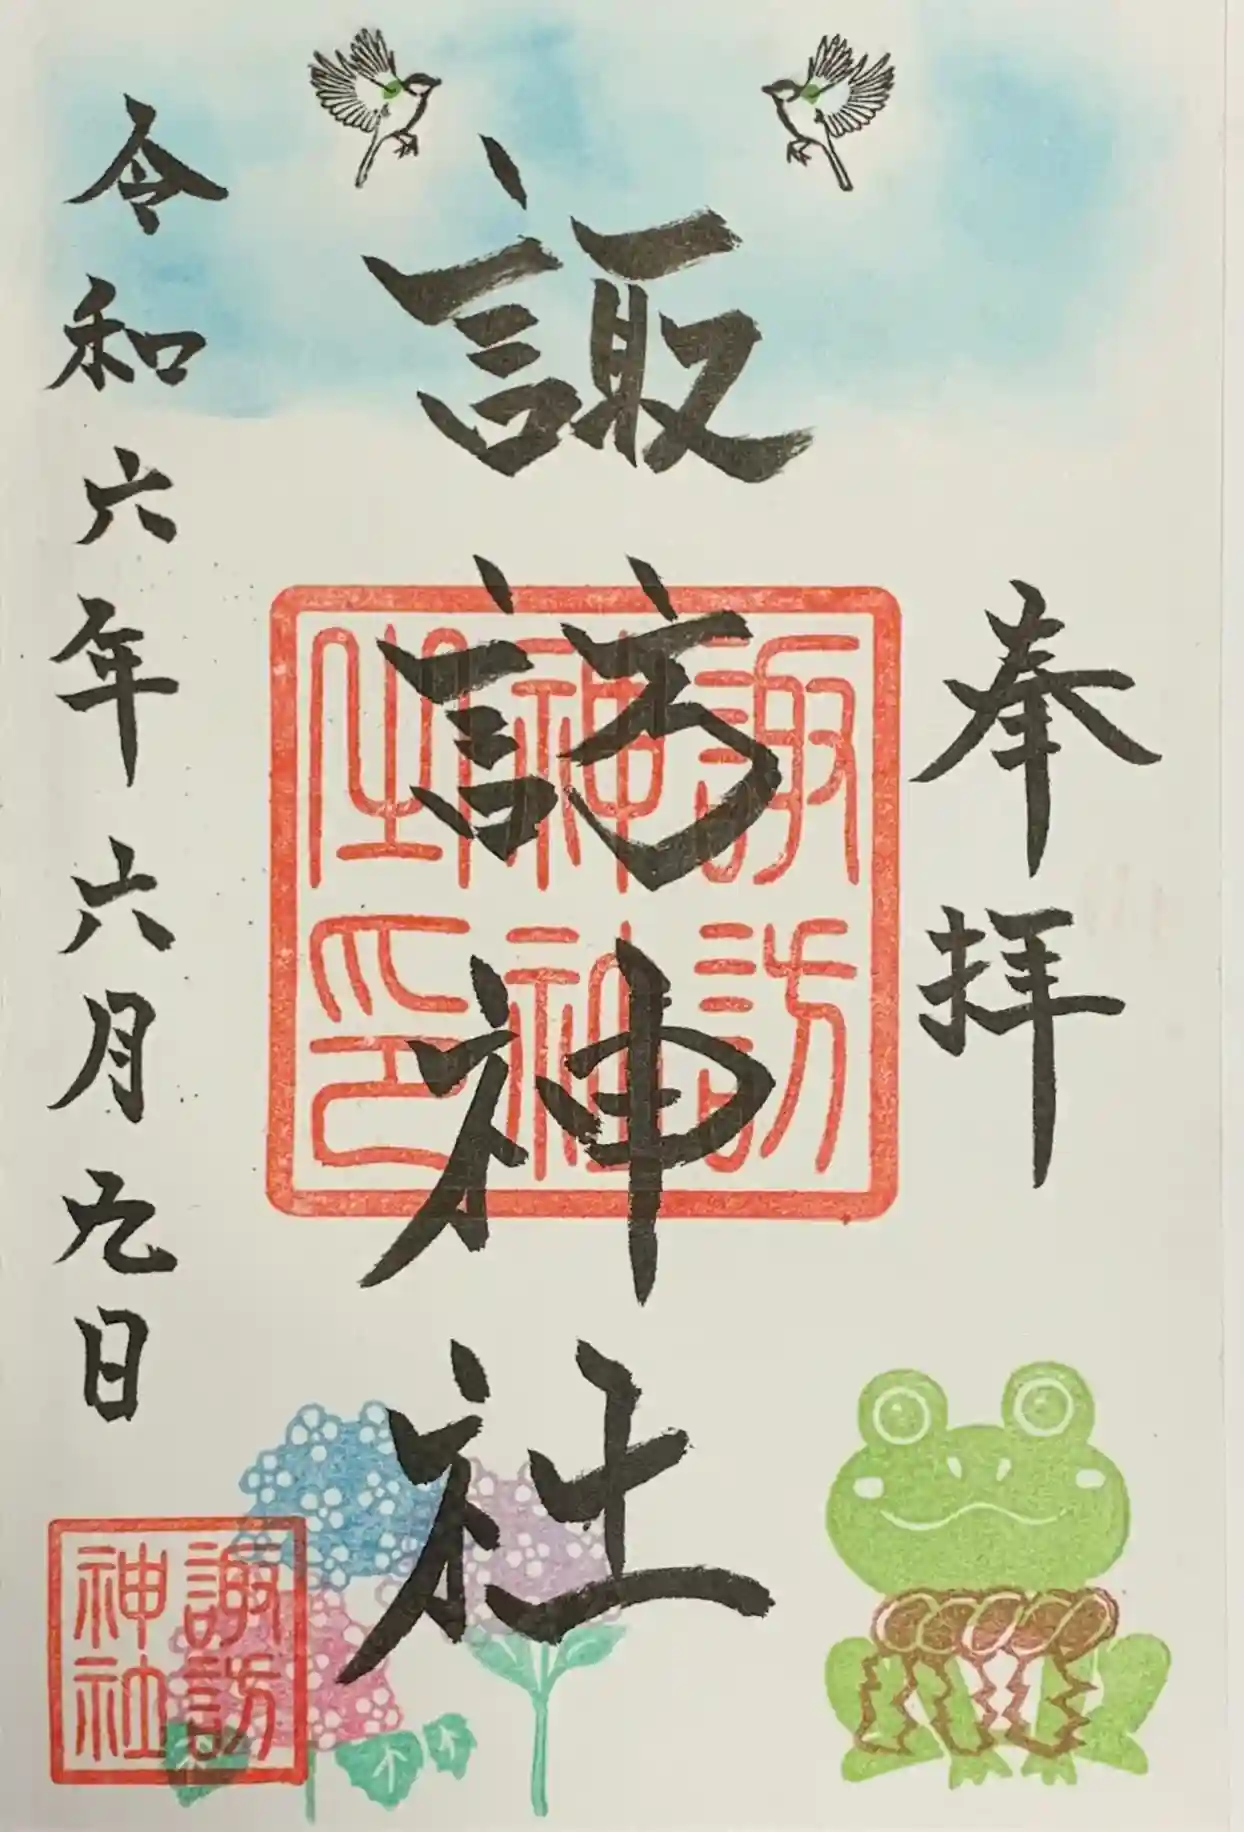 奉拝
諏訪神社
諏訪
神社
之印
令和六年六月九日
諏訪
神社